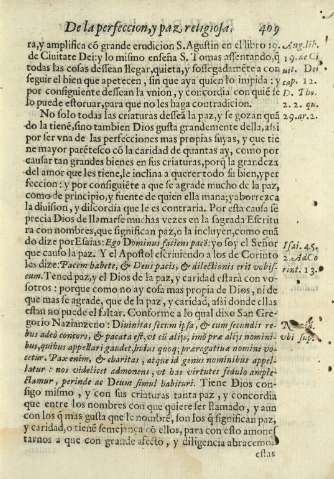 De la perfeccion, y paz religiosa. 409
ra, y amplifica cõ grande erudicion S. Agustin en el libro 19.
de Ciuitate Dei: y lo mismo enseña S. Tomas assentando, q̃
todas las cosas dessean llegar, quieta, y sossegadamẽte a con
seguir el bien que apetecen, sin que aya quien lo impida: y
por consiguiente dessean la vnion, y concordia con quiẽ se
lo puede estoruar, para que no les haga contradicion.
No solo todas las criaturas dessẽa la paz, y se gozan quã
do la tienẽ, sino tambien Dios gusta grandemente della, assi
por ser vna de las perfecciones mas propias suyas, y que tie
ne mayor parẽtesco cõ la caridad de quantas ay, como por
causar tan grandes bienes en sus criaturas, porq̃ la grandeza
del amor que les tiene, le inclina a querer todo su bien, y per
feccion: y por consiguiẽte a que se agrade mucho de la paz,
como de principio, y fuente de quien ella mana; y aborrezca
la diuision, y discordia que le es contraria. Por esta causa se
precia Dios de llamarse muchas vezes en la sagrada Escritu
ra con nombres, que significan paz, o la incluyen, como quã
do dize por Esaias: Ego Dominus faciens pacẽ: yo soy el Señor
que causo la paz. Y el Apostol escriuiendo a los de Corinto
les dize: Pacem habete, & Deus pacis, & dilectionis erit vobis-
cum. Tened paz, y el Dios de la paz, y caridad estará con vo-
sotros: porque como no ay cosa mas propia de Dios, ni de
que mas se agrade, que de la paz, y caridad, assi donde ellas
estan no puede el faltar. Conforme a lo qual dixo San Gre-
gorio Nazianzeno: Diuinitas secum ipsa, & cum secundis re
bus adeò concors, & pacata est, vt cũ alijs, imò præ alijs nomini-
bus, quibus appellari gaudet, huius quoq; prærogatiua nomine vo-
cetur. Pax enim, & charitas, atque id genus nominibus appel-
latur: nos videlicet admonens, vt has virtutes sedulo ample-
ctamur, perinde ac Deum simul habituri. Tiene Dios con-
sigo mismo, y con sus criaturas tanta paz, y concordia
que entre los nombres con que quiere ser llamado, y aun
con los q̃ mas gusta que le nombrẽ, son los q̃ significan paz,
y caridad, o tiene semejança cõ ellos, para con esto amones
tarnos a que con grande afecto, y diligencia abracemos
estas
Aug. lib.
19. de Ci
uit. Dei
cap. 12.
D. Tho.
2. 2. qu.
29. ar. 2.
Isai. 45.
2. ad Co
rint. 13.
Naz.
vbi sup.